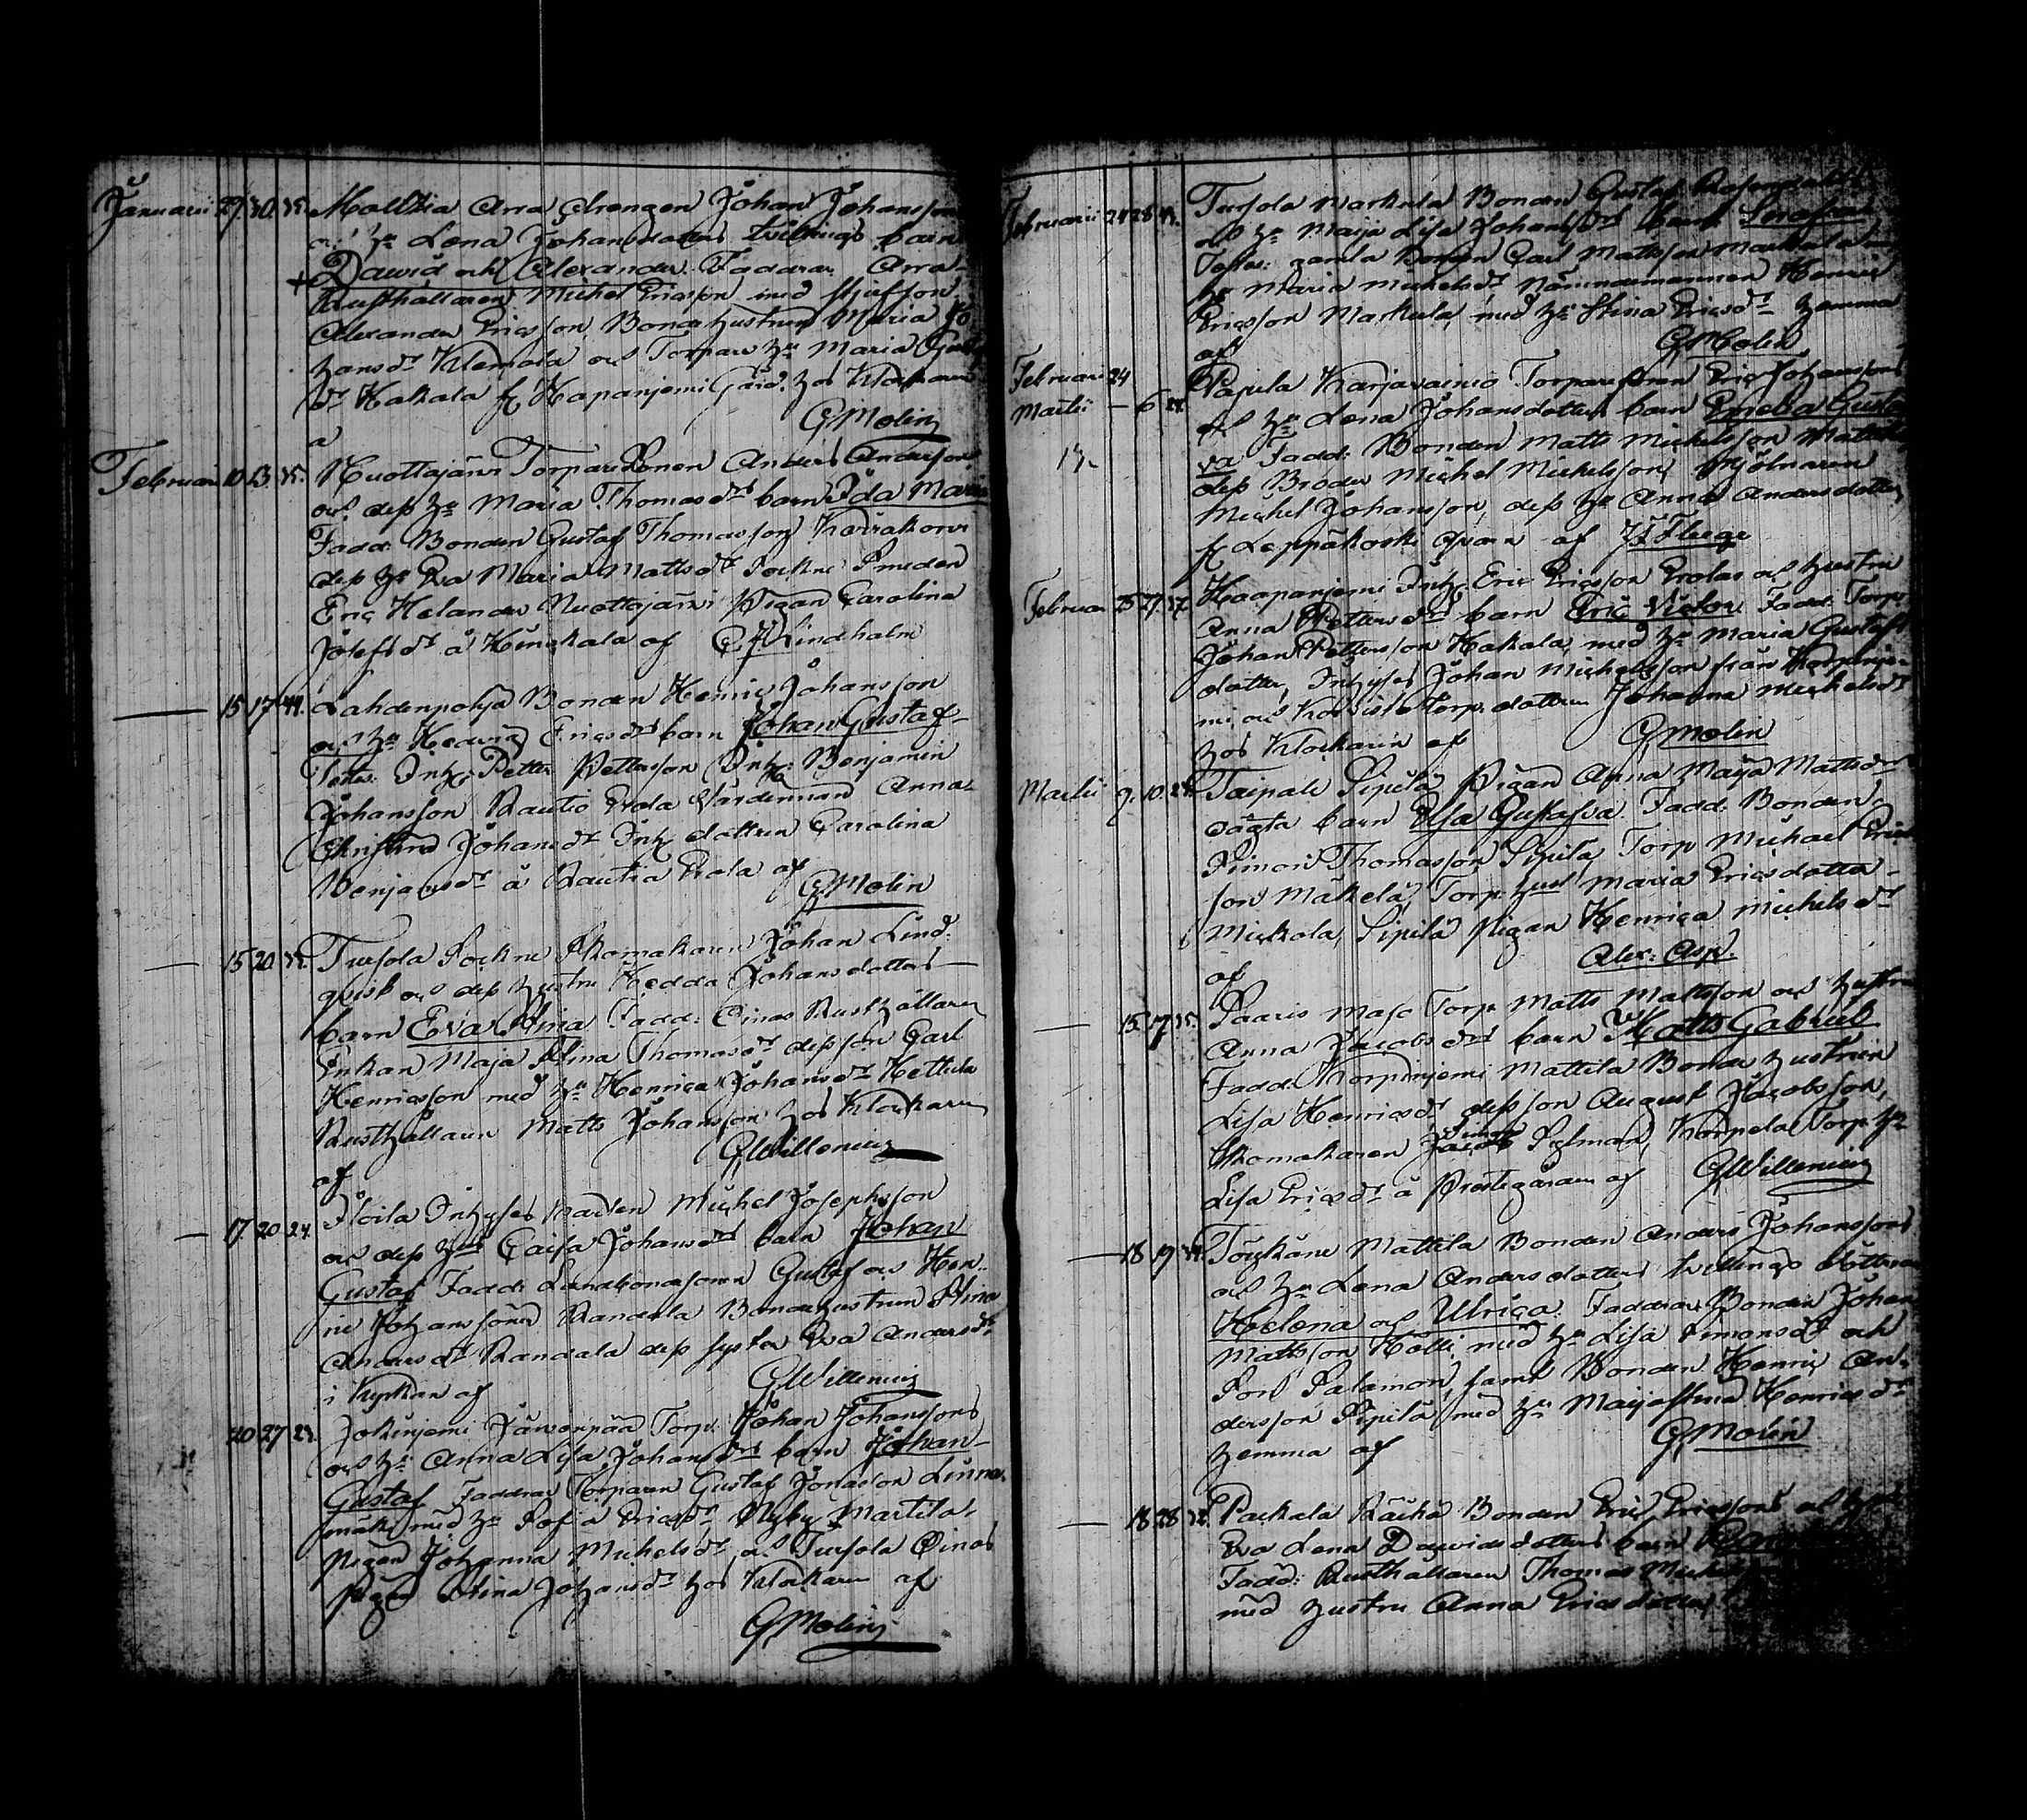 Januarii 29 30. 35. Mälkkia Arra drengen Johan Johansson
och h:u Lena Johansdotters tvillings barn
+ Dawid och Alexander. Faddrar Arra
Rusthållaren Michel Ericsson med
Alexander Ericsson, Bondehustrun Maria Jo-
hansd:r Klemola och Torpare h:u Maria
d:r Hakala fr Haapanjemi hos Klockaren
G Molin
Februarii 10 13. 35. Nuottajärvi Torpare Sonen Anders Anderssons
och dess h:u Maria Thomasd:rs barn Ida Maria
Fadd: Bonden Gustaf Thomasson Kärrakorvi
dess h:u Eva Maria Mattsd:r Sockne Smeden
Eric Helander Nuottajärvi Pigan Carolina
Josefsd:r å Heinikala af C F Lindholm
— 15 17 44. Lahdenpohja Bonden Henric Johansson
och h:u Hedvig Ericsd:rs barn Johan Gustaf
Test: Inh: Petter Pettersson Inh: Benjamin
Johansson Rautio Erola Värdinnan Anna
Christina Johansd:r Inh dottren Carolina
Benjamsd:r å Rautia Erola af
G Molin
— 15 20. 35. Tursola Sockne Skomakaren Johan Lind
qvist och dess hustru Hedda Johansdotters
barn Eva Stina Fadd: Oinas Rusthållare
Enkan Maja Stina Thomasd:r dess son Carl
Henricsson med h:u Henrica Johansd:r Hettula
Rusthållaren Matts Johansson hos Klockaren
af G Willenius
— 17. 20 24. Sloila Inhyses Michel Josephsson
och dess h:us Caisa Johansd:rs barn Johan
Gustaf Fadd: Landbondesönerne Gustaf och Hen-
ric Johanssöner Randala Bondehustrun Stina
Andersd:r Randala dess syster Eva Andersd:r
i Kyrkan af G Willenius
20 27 23. Jokinjemi Jäwenpää Torp: Johan Johanssons
och h:u Anna Lisa Johansd:rs barn Johan
Gustaf Faddrar Torparen Gustaf Jonasson Linna
mäki med h:u Sofia Ericsd:r Nyby Martila
pigan Johanna Michelsd:r och Tursola Oinas
pigan Stina Johansd:r hos Klockaren af
G Molin
Februarii 24 28 Tursola Markula Bonden Gustaf
och h:u Maija Lisa Johansd:rs barn Serafia
Testes: gamla Bonden Carl Mattsson Markula
h:u Maria Michelsd:r Nämndemannen Henric
Ericsson Markula, med h:u Stina Ericsd:r hemma
af G Molin
Februarii 24
Martii — 6 24. Pajula Karjavainio Torparesonen Eric Johanssons
och h:u Lena Johansdotters barn Emelia Gusta
va Fadd: Bonden Matts Michelsson
dess Broder Michel Michelsson, Mjölnaren
Michel Johansson, dess h:u Anna Andersdotter
fr Leppäkoski qvarn af
Februar 25 27. 37. Haapanjemi Inh: Eric Ericsson Erolas och hustru
Anna Pettersd:rs barn Eric Victor Fadd: Torp:
Johan Pettersson Hakala, med h:u Maria Gustafs
dotter, Inhyses Johan Michelsson från Korpinje-
mi och Torp. dottren Johanna Michelsd:r
hos Klockaren af G Molin
Martii 9. 10. 24. Taipale Sipilä Pigan Anna Maija Mattsd:r
oägta barn Elsa Gustafva Fadd: Bonden
Simon Thomasson Sipilä, Torp Michael Erics
son Mäkelä, Torp: hust Maria Ericsdotter
Mickola, Sipilä Pigan Henrica Michelsd:r
af Alex: Asp.
— 15. 17. 35. Saaris Maso Torp: Matts Mattsson och hustru
Anna Jacobsd:rs barn Matts Gabriel
Fadd: Korpinjemi Mattila Bonde hustrun
Lisa Henricsd:r dess son August Jacobsson,
Skomakaren Simon Sjöman, Korpela Torp h:u
Lisa Ericsd:r å Prestegården af G Willenius
— 18 19 34. Töykäne Mattila Bonden Anders Johanssons
och h:u Lena Andersdotters tvillings döttrar
Helena och Ulrica Faddrar Bonden Johan
Mattsson Kölli med h:u Lisa Simonsd:r och
Son Salamon, samt Bonden Henric An-
dersson Sipilä med h:u Maija Stina Henricsd:r
hemma af G Molin
— 18 28 32. Packala Räikä Bonden Eric Ericssons och h:u
Eva Lena Davidsdotters barn
Fadd: Rusthållaren Thomas
med hustru Anna Ericsdotter